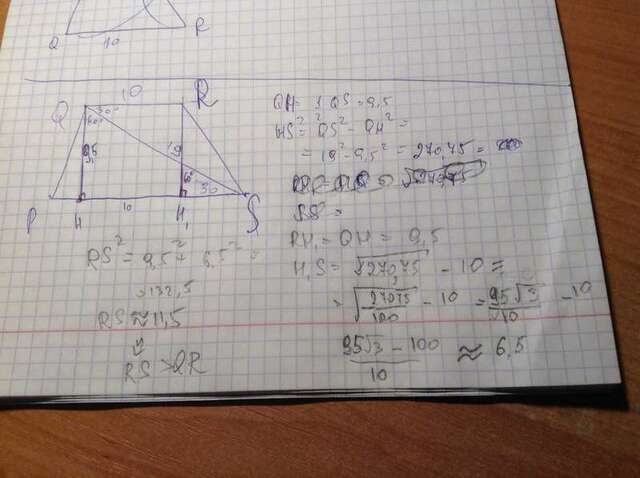 Q 10 R
10
Q R
30°
60°
9,5
19
60°
30
P H 10 H₁ S
QH = 1/2 QS = 9,5
HS² = QS² - QH² =
= 19² - 9,5² = 270,75 =
RH₁ = QH = 9,5
H₁S = √270,75 - 10 =
= √(27075/100) - 10 = 95√3/10 - 10
(95√3 - 100)/10 ≈ 6,5
RS² = 9,5² + 6,5² =
= 132,5
RS ≈ 11,5
⇓
RS > QR